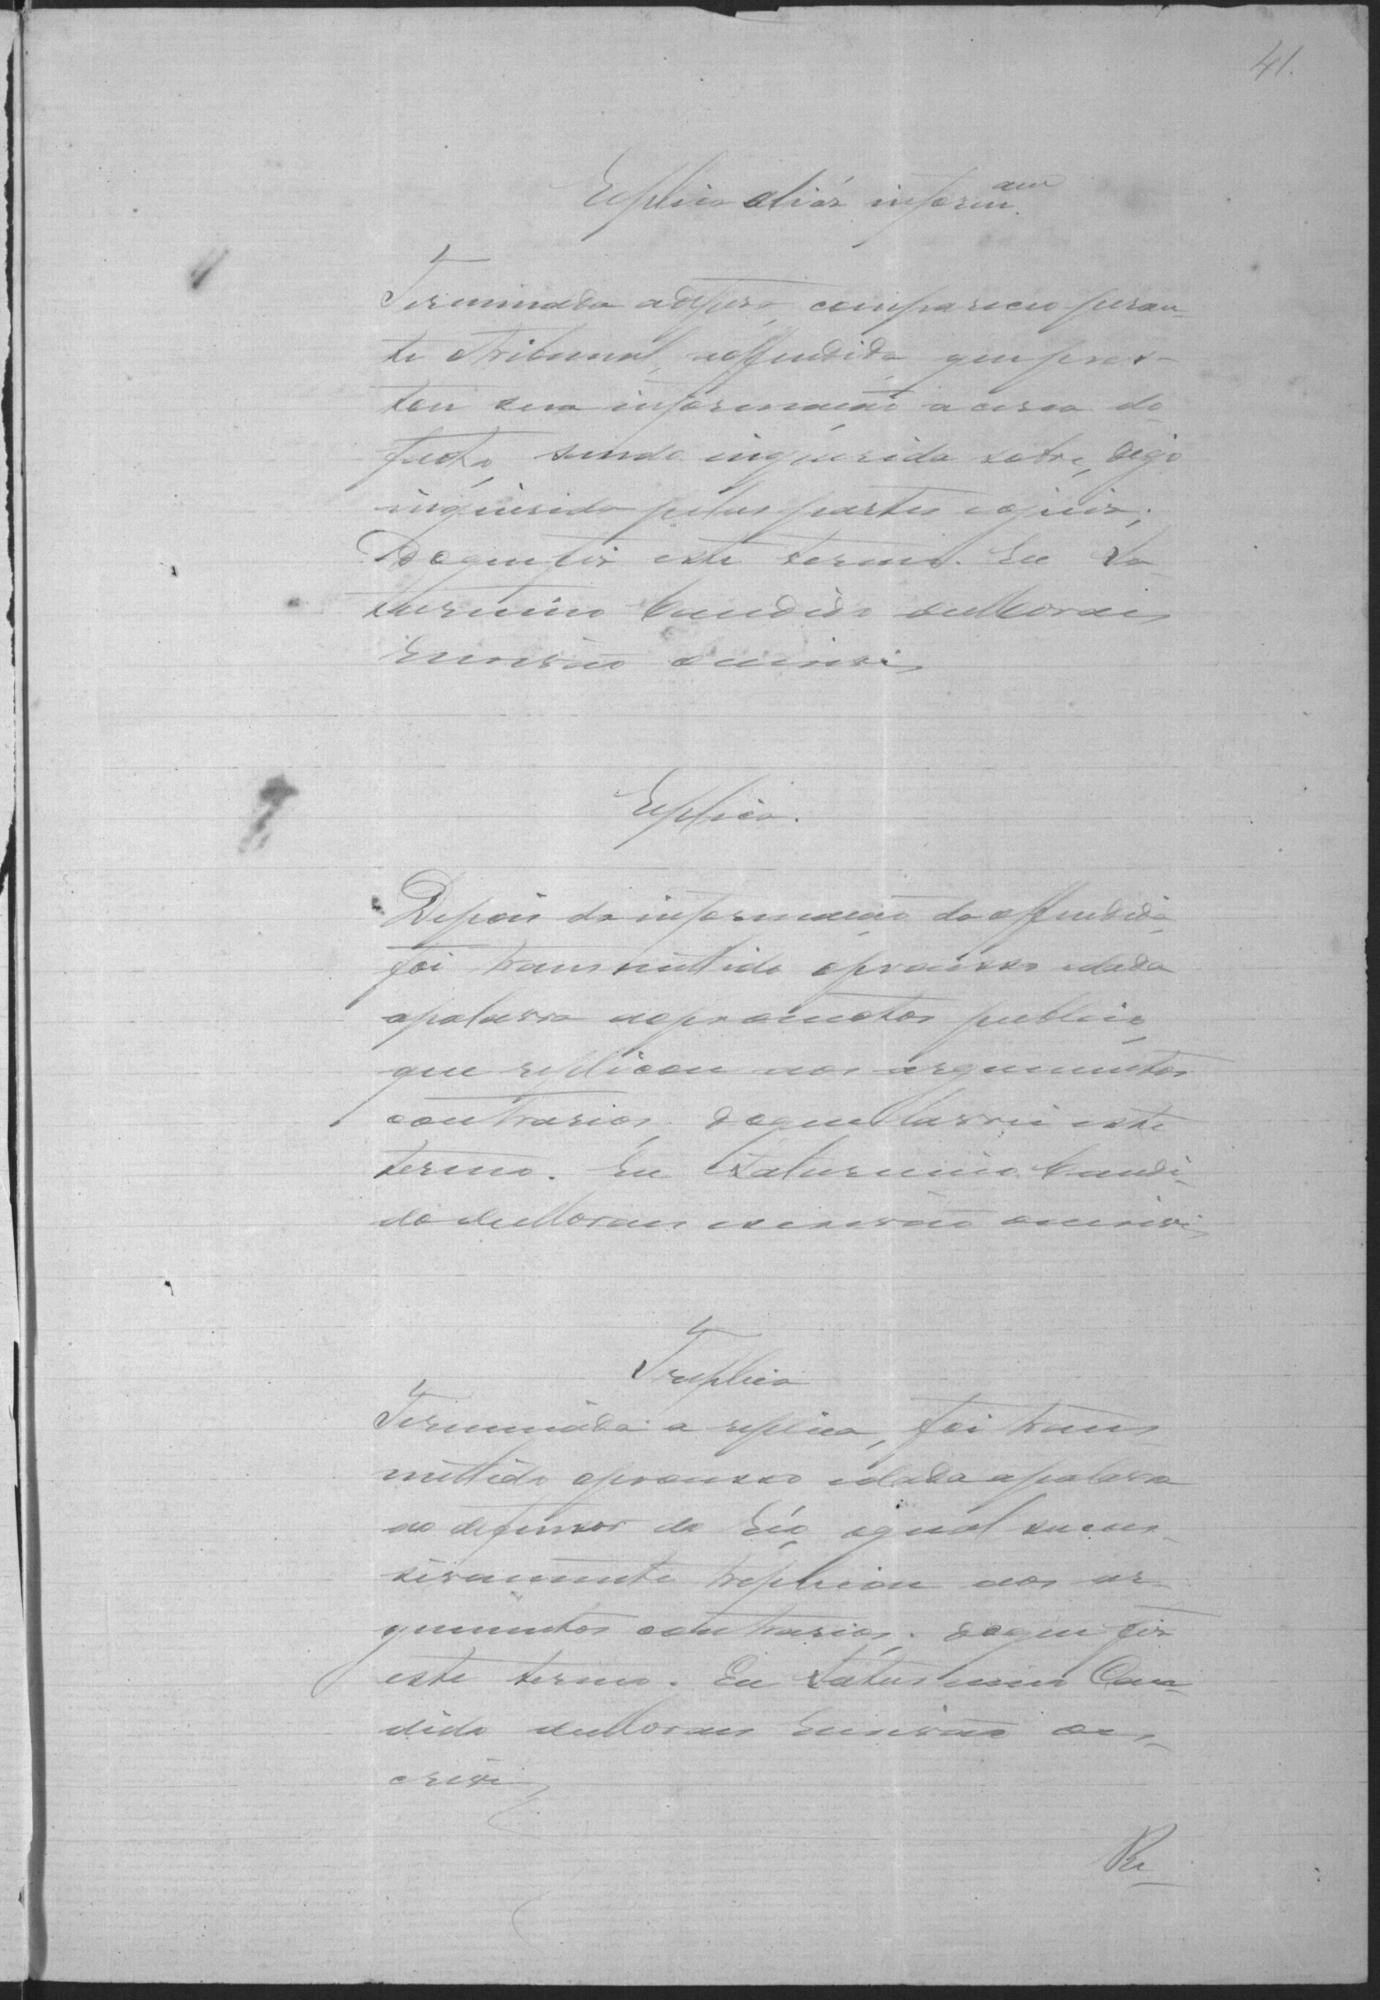 41.
Replica aliás inform.am
Terminada adefesa, compareceu peran-
te otribunal, aoffendida, que pres-
tou sua informação a cerca do
facto, sendo inquerida sobre, digo
inquirida pelas partes ejuiz;
Doque fiz este termo. Eu Sa-
turnino Candido deMoraes
Escrivão oescrivi,
Replica.
Depois da informação da offendida,
foi transmittido oprocesso edada
apalavra aopromotor publico,
que replicou aos argumentos
contrarios, doque lavrei este
termo. Eu Saturnino Candi-
do deMoraes escrivão oescrivi,
Treplica
Terminada a replica, foi trans
mittido oprocesso edada apalavra
ao defensor do Réo, oqual succes-
sivamente treplicou aos ar-
gumentos contrarios. doque fiz
este termo. Eu Saturnino Can-
dido deMoraes Escrivão oes-
crivi,
Re